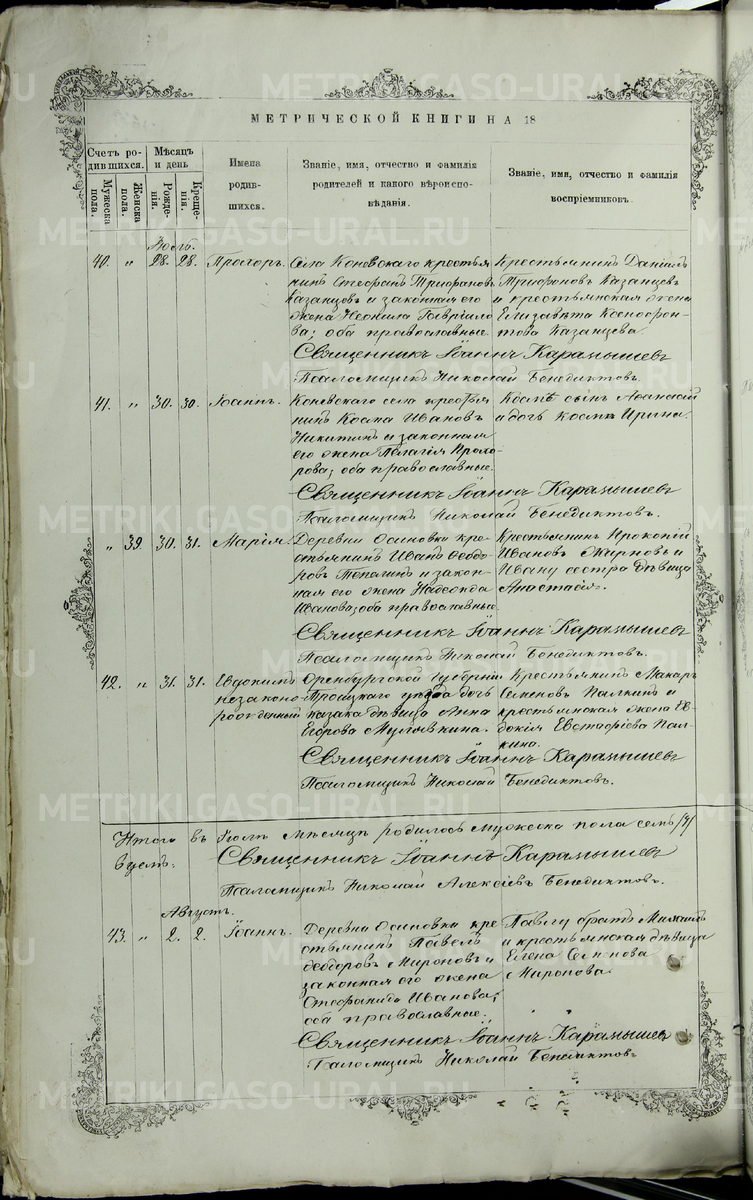 МЕТРИЧЕСКОЙ КНИГИ НА 18
Счетъ родившихся.
Мужеска пола.
Женска пола.
Мѣсяцъ и день
Рожденія.
Крещенія.
Имена
родив-
шихся.
Званіе, имя, отчество и фамилія
родителей и какого вѣроиспо-
вѣданія.
Званіе, имя, отчество и фамилія
воспріемниковъ.
Июль.
40. " 28. 28. Прохоръ.
Села Коневскаго крестья
нинъ Стефанъ Трифоновъ
Казанцевъ и законная его
жена Неонила Гаврило
ва; оба православные
Крестьянинъ Даніилъ
Трифоновъ Казанцевъ
и крестьянская жена
Елизавета Ксенофон-
това Казанцева.
Священникъ Іоаннъ Карамышевъ
Псаломщикъ Николай Бенедиктовъ.
41. " 30. 30. Іоаннъ.
Коневскаго села крестья
нинъ Косма Ивановъ
Никитинъ и законная
его жена Пелагія Прохо-
рова; оба православные.
Космы сынъ Афанасій
и дочь Космы Ирина.
Священникъ Іоаннъ Карамышевъ
Псаломщикъ Николай Бенедиктовъ.
" 39. 30. 31. Марія.
Деревни Осиновки кре-
стьянинъ Иванъ Ѳеодо-
ровъ и закон-
ная его жена Надежда
Иванова; оба православные
Крестьянинъ Прокопій
Ивановъ и
Ивану сестра дѣвица
Анастасія.
Священникъ Іоаннъ Карамышевъ
Псаломщикъ Николай Бенедиктовъ.
42. " 31. 31. Евдокимъ
незаконо-
рожденный
Оренбургской Губерніи
Троицкаго уѣзда дочь
казака дѣвица Анна
Егорова
Крестьянинъ Макаръ
Семеновъ Палкинъ и
крестьянская жена Ев
докія Евстафіева Пал-
кина.
Священникъ Іоаннъ Карамышевъ
Псаломщикъ Николай Бенедиктовъ.
Итого въ Іюлѣ мѣсяцѣ родилось мужеска пола семь /7/
Священникъ Іоаннъ Карамышевъ
Псаломщикъ Николай Алексѣевъ Бенедиктовъ.
Августъ.
43. " 2. 2. Іоаннъ.
Деревни Осиновки кре
стьянинъ Павелъ
Ѳеодоровъ Мироновъ и
законная его жена
Стефанида Иванова;
оба православные.
Павлу братъ Михаилъ
и крестьянская дѣвица
Елена Семенова
Миронова.
Священникъ Іоаннъ Карамышевъ
Псаломщикъ Николай Бенедиктовъ
METRIKI.GASO-URAL.RU